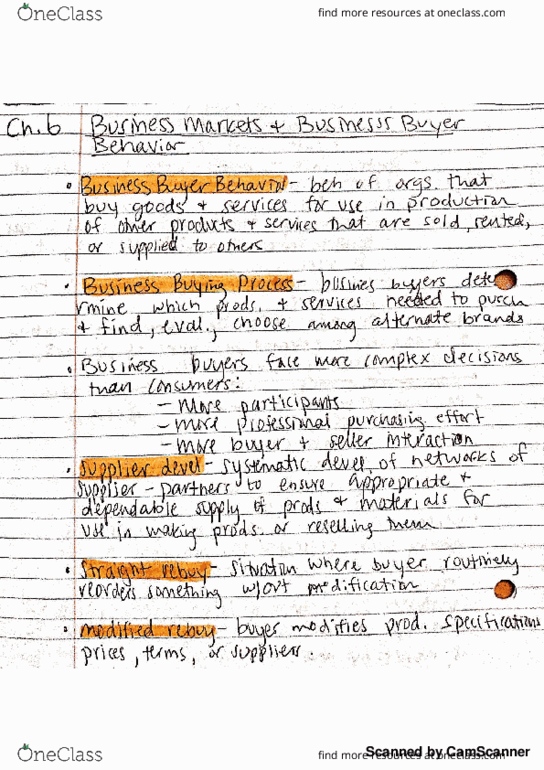 OneClass
find more resources at oneclass.com
Ch.6 Business Markets + Businesss Buyer
Behavior
• Business Buyer Behavior - beh of orgs that
buy goods + services for use in production
of other products + services that are sold, rented,
or supplied to others
• Business Buying Process - busines buyers dete
rmine which prods. + services needed to purch
+ find, eval., choose among alternate brands
• Business buyers face more complex decisions
than consumers:
- more participants
- more professional purchasing effort
- more buyer + seller interaction
• Supplier devel - systematic devel of networks of
supplier-partners to ensure appropriate +
dependable supply of prods + materials for
use in making prods. or reselling them
• Straight rebuy - situation where buyer routinely
reorders something w/out modification
• modified rebuy - buyer modifies prod. specifications
prices, terms, or suppliers.
OneClass
find more resources at oneclass.com
Scanned by CamScanner